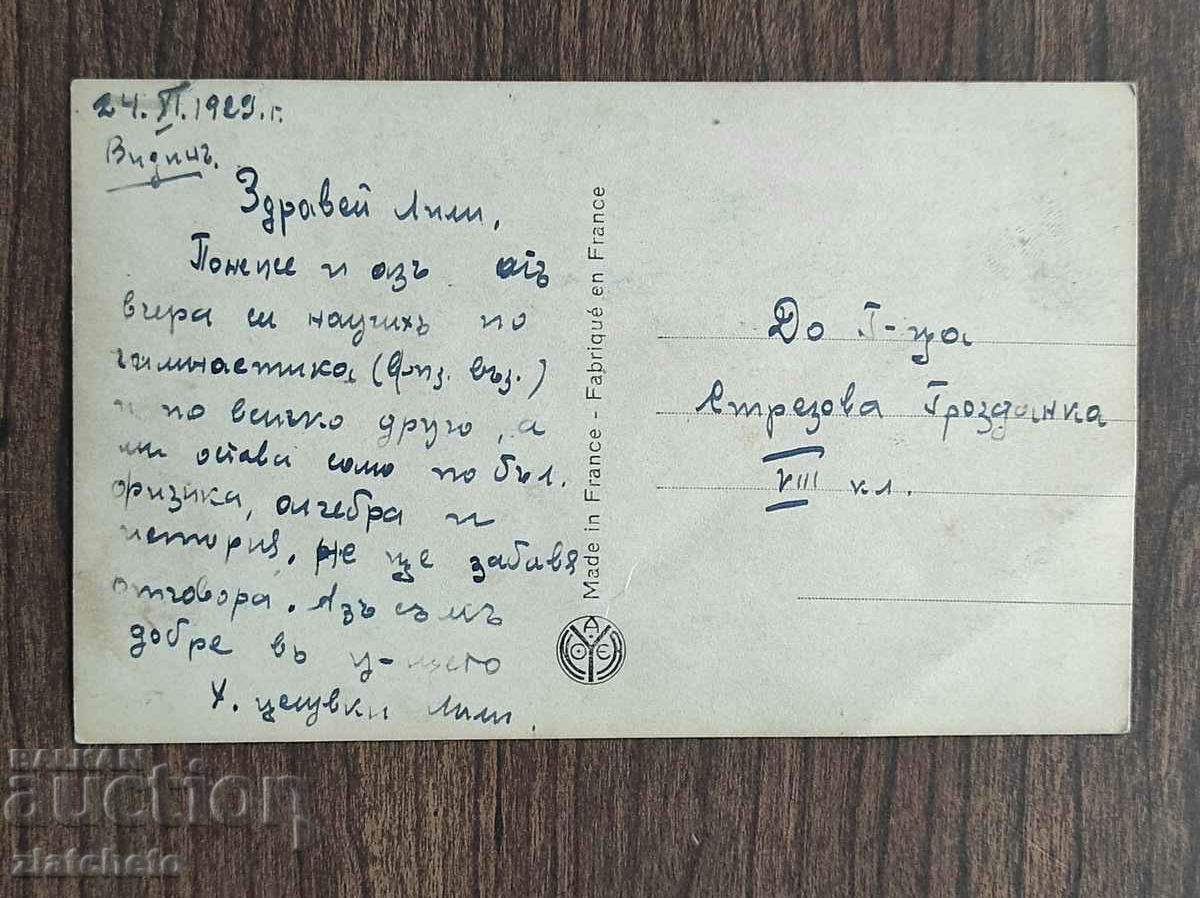 24.VI.1929.г.
Видинъ.
Здравей Лили,
Понеже и азъ отъ
вчера си научихъ по
гимнастика (физ. въз.)
и по всичко друго, а
ми остави само по бъл.
физика, алгебра и
история, не ще забавя
отговора. Азъ съмъ
добре въ у-щето
Х. целувки Лили.
Made in France - Fabriqué en France
До Г-ца
Стрезова Грозданка
VIII кл.
BALKAN
auction
zlatcheto